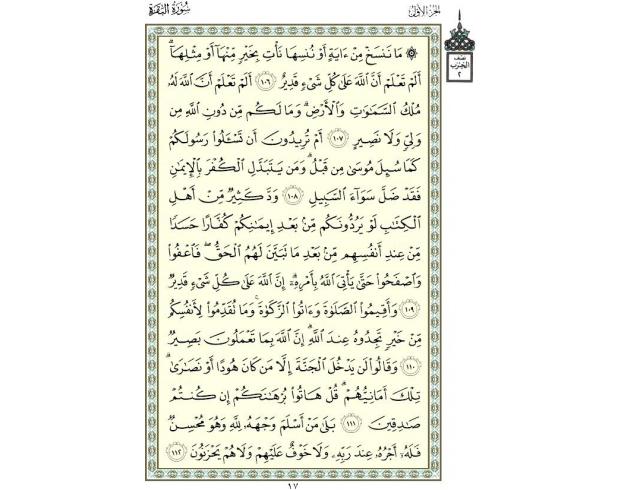 الجزء الأول
سورة البقرة
نصف
الحزب
٢
۞ مَا نَنسَخْ مِنْ ءَايَةٍ أَوْ نُنسِهَا نَأْتِ بِخَيْرٍ مِّنْهَآ أَوْ مِثْلِهَآ ۗ
أَلَمْ تَعْلَمْ أَنَّ ٱللَّهَ عَلَىٰ كُلِّ شَىْءٍ قَدِيرٌ ١٠٦ أَلَمْ تَعْلَمْ أَنَّ ٱللَّهَ لَهُۥ
مُلْكُ ٱلسَّمَٰوَٰتِ وَٱلْأَرْضِ ۗ وَمَا لَكُم مِّن دُونِ ٱللَّهِ مِن
وَلِىٍّ وَلَا نَصِيرٍ ١٠٧ أَمْ تُرِيدُونَ أَن تَسْـَٔلُوا۟ رَسُولَكُمْ
كَمَا سُئِلَ مُوسَىٰ مِن قَبْلُ ۗ وَمَن يَتَبَدَّلِ ٱلْكُفْرَ بِٱلْإِيمَٰنِ
فَقَدْ ضَلَّ سَوَآءَ ٱلسَّبِيلِ ١٠٨ وَدَّ كَثِيرٌ مِّنْ أَهْلِ
ٱلْكِتَٰبِ لَوْ يَرُدُّونَكُم مِّنۢ بَعْدِ إِيمَٰنِكُمْ كُفَّارًا حَسَدًا
مِّنْ عِندِ أَنفُسِهِم مِّنۢ بَعْدِ مَا تَبَيَّنَ لَهُمُ ٱلْحَقُّ ۖ فَٱعْفُوا۟
وَٱصْفَحُوا۟ حَتَّىٰ يَأْتِىَ ٱللَّهُ بِأَمْرِهِۦٓ ۗ إِنَّ ٱللَّهَ عَلَىٰ كُلِّ شَىْءٍ قَدِيرٌ
١٠٩ وَأَقِيمُوا۟ ٱلصَّلَوٰةَ وَءَاتُوا۟ ٱلزَّكَوٰةَ ۚ وَمَا تُقَدِّمُوا۟ لِأَنفُسِكُم
مِّنْ خَيْرٍ تَجِدُوهُ عِندَ ٱللَّهِ ۗ إِنَّ ٱللَّهَ بِمَا تَعْمَلُونَ بَصِيرٌ
١١٠ وَقَالُوا۟ لَن يَدْخُلَ ٱلْجَنَّةَ إِلَّا مَن كَانَ هُودًا أَوْ نَصَٰرَىٰ ۗ
تِلْكَ أَمَانِيُّهُمْ ۗ قُلْ هَاتُوا۟ بُرْهَٰنَكُمْ إِن كُنتُمْ
صَٰدِقِينَ ١١١ بَلَىٰ مَنْ أَسْلَمَ وَجْهَهُۥ لِلَّهِ وَهُوَ مُحْسِنٌ
فَلَهُۥٓ أَجْرُهُۥ عِندَ رَبِّهِۦ وَلَا خَوْفٌ عَلَيْهِمْ وَلَا هُمْ يَحْزَنُونَ ١١٢
١٧